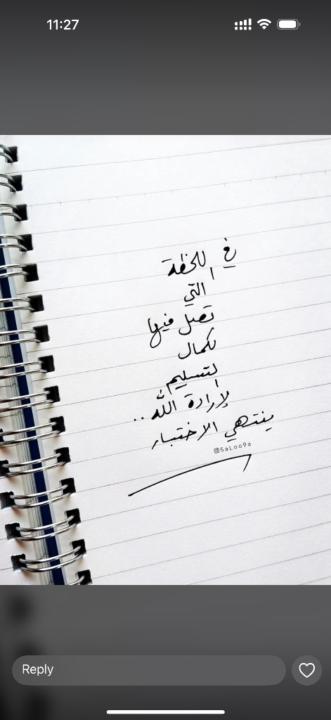 11:27
في اللحظة
التي
تصل فيها
لكمال
التسليم
لإرادة الله..
ينتهي الاختبار
@SaLoo9a
Reply